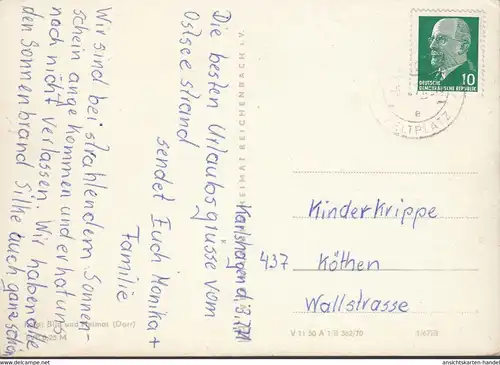 Karlshagen d.
Die besten Urlaubsgrüsse vom
Ostseestrand
sendet Euch Monika +
Familie
Wir sind bei strahlendem Sonnen-
schein angekommen und er hat uns
noch nicht verlassen. Wir haben alle
den Sonnenbrand Silke auch ganz schön
HEIMAT REICHENBACH i. V.
Bild und Heimat (Darr)
DEUTSCHE
DEMOKRATISCHE REPUBLIK
10
ZELTPLATZ
e
Kinderkrippe
437 Köthen
Wallstrasse
V 11 50 A 1/B 362/70
1/6728
www.ansichtskarten-handel.com